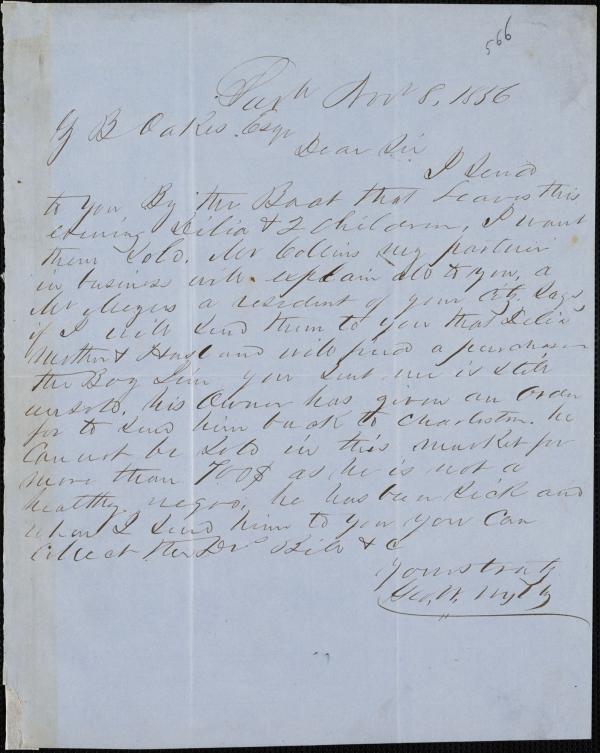 566
Savh Novr 8, 1856
Z B Oakes Esqr
Dear Sir
I Send
to you By the Boat that Leaves this
evening Delia & 2 Children, I want
them Sold. Mr Collins my partner
in business will explain all to you, a
Mr Meyers a resident of your City Says
if I will Send them to you that Delia's
Mother & Husband will find a purchaser
the Boy Jim you Sent me is Still
unsold, his Owner has given an Order
for to Send him back to Charleston. he
Can not be Sold in this Market for
more than 700$ as he is not a
healthy negro, he has been Sick and
when I Send him to you you Can
Collect the Drs Bill & c
Yours truly
Geo. W. Wylly